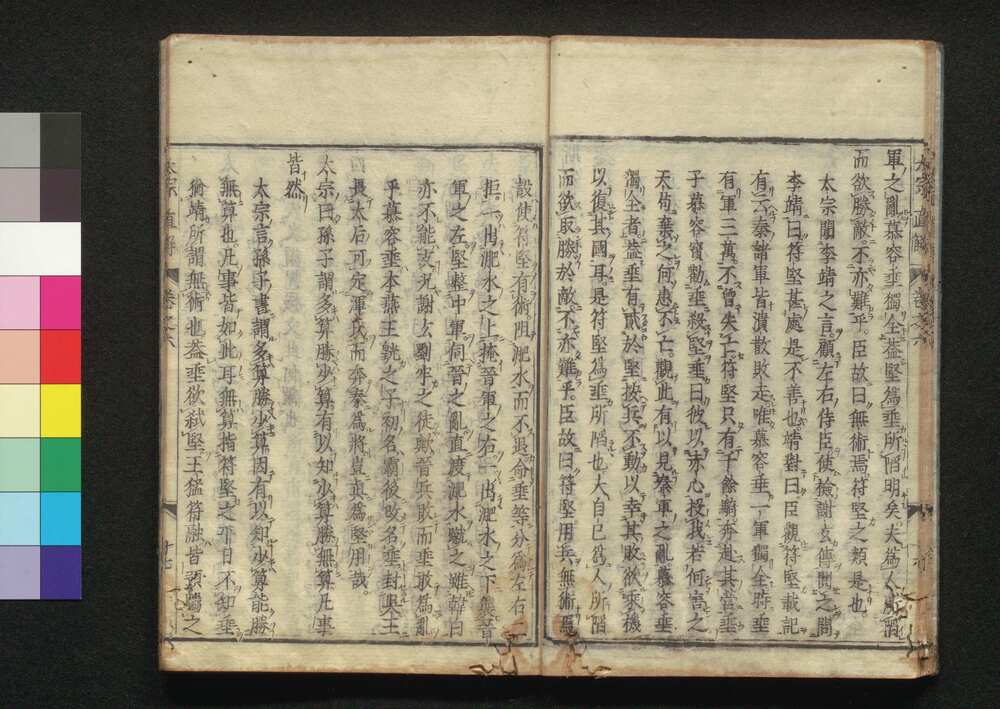 軍之亂慕容垂獨全葢堅爲垂所陷明矣夫爲人所陷
而欲勝敵不亦難乎臣故曰無術焉符堅之類是也
太宗聞李靖之言顧左右侍臣使檢謝玄傳聞之間
李靖曰符堅甚處是不善也靖對曰臣觀符堅載記
有云秦諸軍皆潰散敗走唯慕容垂一軍獨全時垂
有軍三萬不曾失亡符堅只有千餘騎奔赴其营垂
子慕容寳勸垂殺堅垂曰彼以赤心投我若何害之
天苟棄之何患不亡觀此有以見秦軍之亂慕容垂
獨全者葢垂有貳於堅按兵不動以幸其敗欲乘機
以復其國耳是符堅爲垂所陷也大自已爲人所陷
而欲取勝於敵不亦難乎臣故曰符堅用兵無術焉
設使符堅有術阻淝水而不退命垂等分爲左右
拒一出淝水之上掩晉軍之右一出淝水之下襲晉
軍之左堅整中軍伺晉之亂直渡淝水蹴之雖韓白
亦不能支尤謝玄劉牢之徒歟晉兵敗而垂敢爲亂
乎慕容垂本燕王皝之子初名霸後改名垂封吳王
畏太后可足渾氏而奔秦爲將豈真爲堅用哉
太宗曰孫子謂多算勝少算有以知少算勝無算凡事
皆然
太宗言孫子書謂多算勝少算因有以知少算能勝
無算也凡事皆如此耳無算指符堅之平日不知垂
猶靖所謂無術也葢垂欲弑堅王猛符融皆預言之
太宗 直解
卷之六
十七